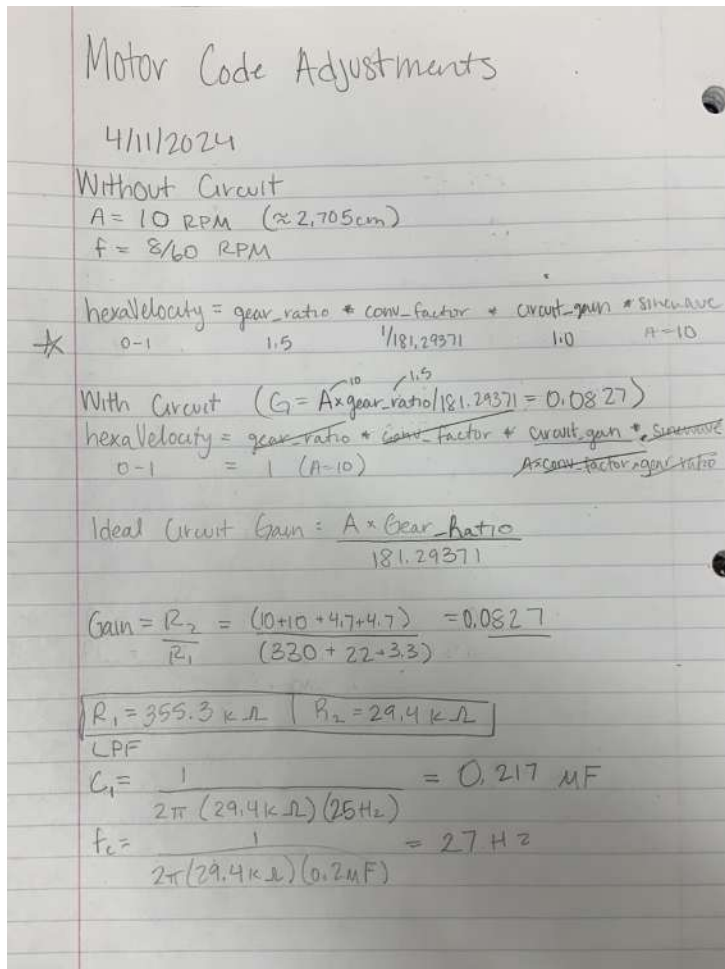 Motor Code Adjustments
4/11/2024
Without Circuit
A = 10 RPM (≈ 2,705cm)
f = 8/60 RPM
hexaVelocity = gear_ratio * conv_factor * circuit_gain * sinewave
☆ 0-1 1.5 1/181.29371 1.0 A=10
10 1.5
With Circuit (G = A×gear_ratio/181.29371 = 0.0827)
hexaVelocity = gear_ratio * conv_factor * circuit_gain * sinewave
0-1 = 1 (A=10) A×conv_factor×gear_ratio
Ideal Circuit Gain = A × Gear_Ratio
181.29371
Gain = R2 = (10+10+4.7+4.7) = 0.0827
R1 (330 + 22+3.3)
R1 = 355.3 kΩ | R2 = 29.4 kΩ
LPF
C1 = 1 = 0.217 µF
2π (29.4kΩ)(25Hz)
fc = 1 = 27 Hz
2π(29.4kΩ)(0.2µF)